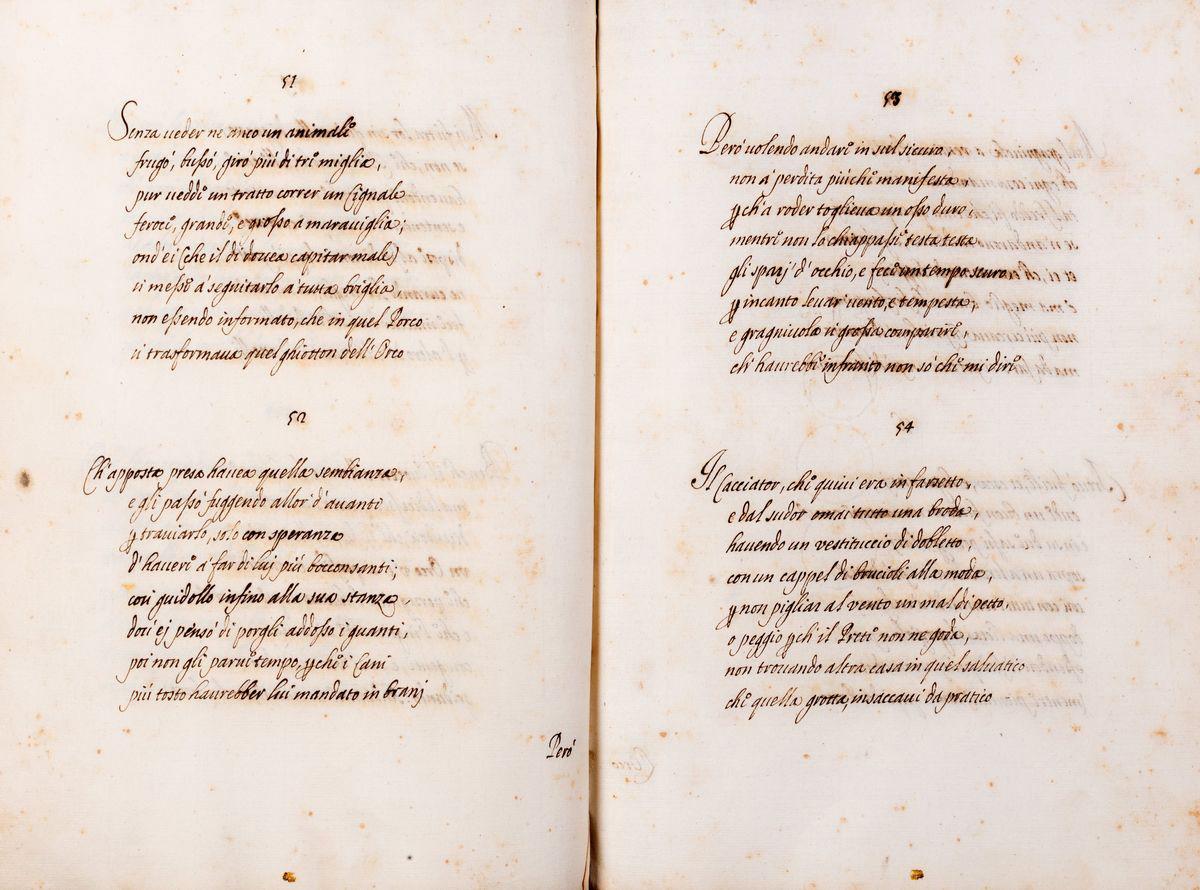 51
Senza ueder ne anco un animale
frugó, bussó, giró piú di tre miglia,
pur uedde un tratto correr un Cignale
feroce, grande, e grosso a marauiglia;
ond'ei (che il dì douea capitar male)
si messe á seguitarlo a tutta briglia,
non essendo informato, che in quel Porco
si trasformaua quel ghiotton dell'Orco
52
Ch'apposta presa hauea quella sembianza,
e gli passó fuggendo allor d'auanti
ꝑ trauiarlo, solo con speranza
d'hauere á far di luj piú bocconsanti;
cosi guidollo infino alla sua stanza,
dou'ej pensó di porgli addosso i guanti,
poi non gli parue tempo, ꝑche i Cani
piú tosto haurebber lui mandato in branj
Peró
53
Peró uolendo andare in sul sicuro,
non á perdita piúche manifesta
ꝑch'a roder toglieua un osso duro,
mentre non lo chiappasse testa testa
gli sparj d'occhio, e fece un tempo scuro
ꝑ incanto leuar uento, e tempesta,
e gragnuola si grossa comparire,
ch'haurebbe infranto non só che mi dire
54
Il Cacciator, che quiui era in farsetto,
e dal sudor omai tutto una broda,
hauendo un vestituccio di dobletto,
con un cappel di brucioli alla moda,
ꝑ non pigliar al vento un mal di petto,
o peggio ꝑch'il Prete non ne goda,
non trouando altra casa in quel saluatico
che quella grotta, insaccaui da pratico